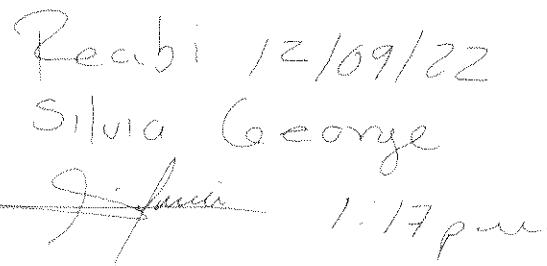 Recibi 12/09/22
Silvia George
1:17 pm